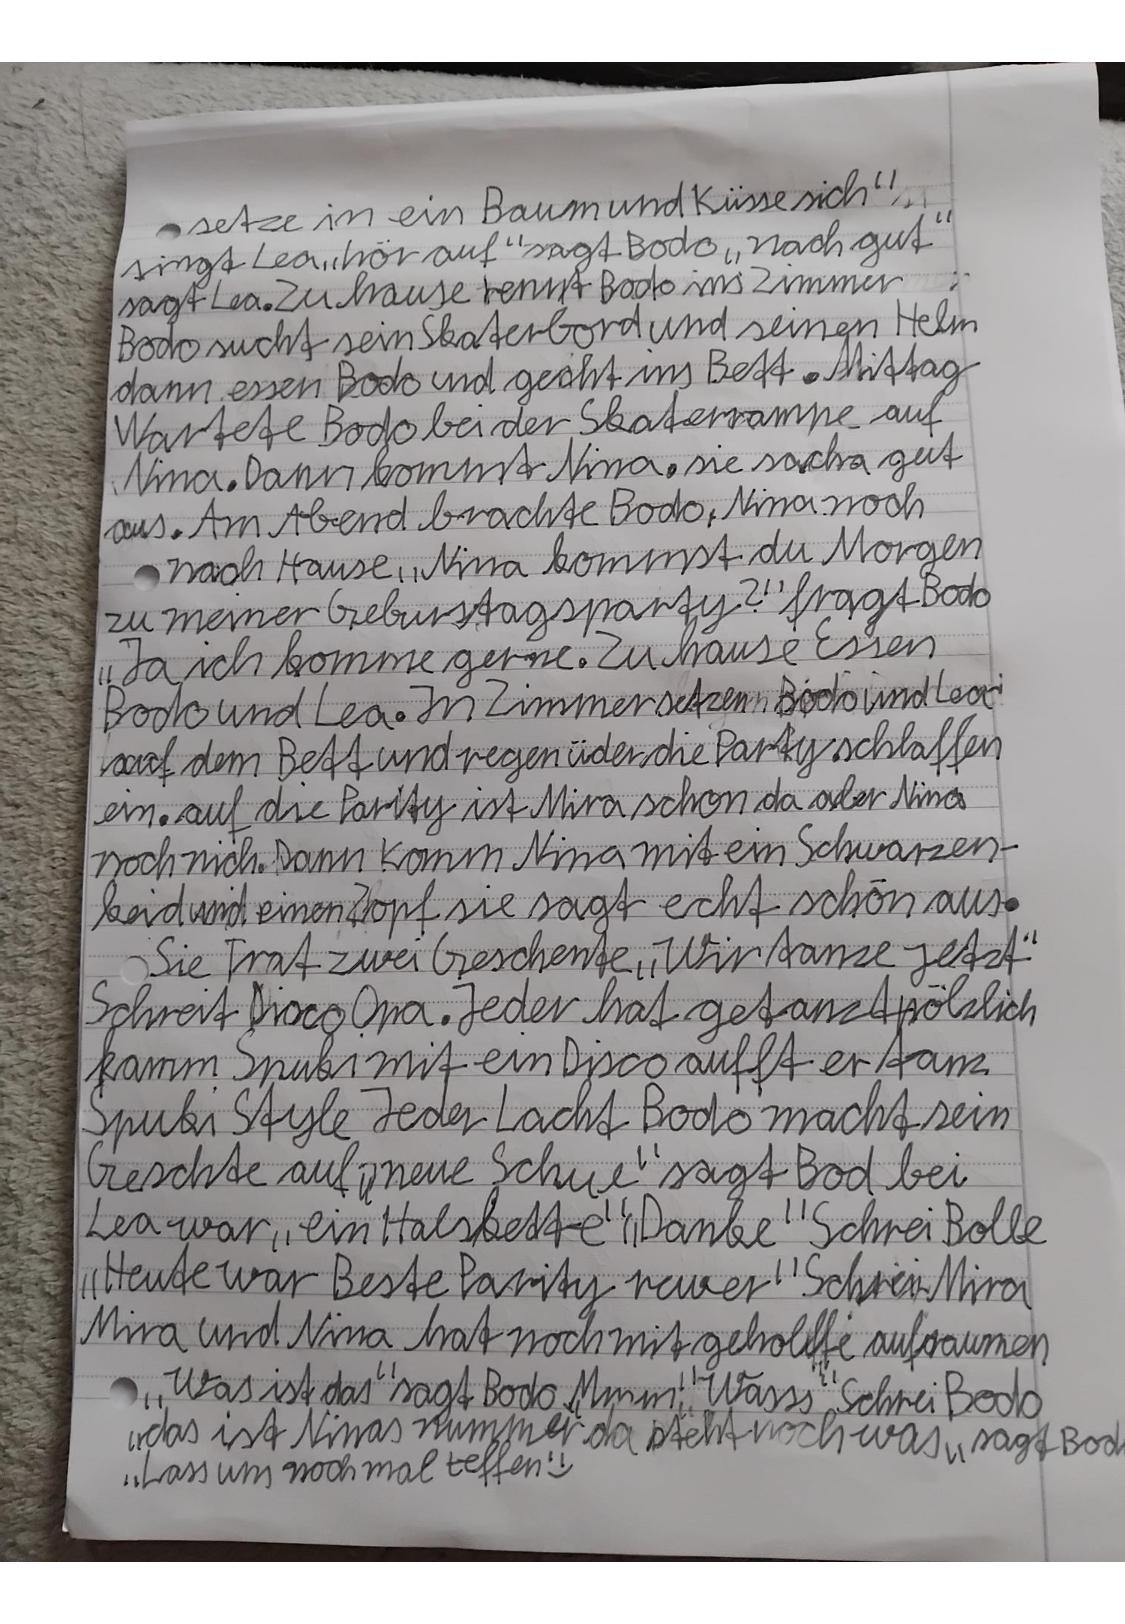 setze in ein Baum und Küsse sich"
singt Lea „hör auf" sagt Bodo „nach gut"
sagt Lea. Zu hause rennt Bodo ins Zimmer
Bodo sucht sein Skaterbord und seinen Helm
dann essen Bodo und geht ins Bett. Mittag
Wartete Bodo bei der Skaterrampe auf
Nina. Dann kommt Nina. sie gut
aus. Am Abend brachte Bodo, Nina noch
nach Hause „Nina kommst du Morgen
zu meiner Geburstagsparty?" fragt Bodo
„Ja ich komme gerne. Zu hause Essen
Bodo und Lea. In Zimmer setzen Bodo und Lea
auf dem Bett und regen üder die Party schlaffen
ein. auf die Parity ist Mira schon da aber Nina
noch nich. Dann Komm Nina mit ein Schwarzen-
keid und einen Zopf sie sagt echt schön aus.
Sie Trat zwei Geschente „Wir tanze jetzt"
Schreit Disco Opa. Jeder hat getanzt plölzlich
kamm Spuki mit ein Disco aufft er tanz
Spuki Style Jeder Lacht Bodo macht sein
Geschte auf „neue Schue" sagt Bod bei
Lea war „ein Halskette" „Danke" Schrei Bolle
„Heute war Beste Parity rewer" Schrei Mira
Mira und Nina hat noch mit geholffe aufraumen
„Was ist das" sagt Bodo „Mmm" „Wass" Schrei Bodo
„das ist Ninas nummer da steht noch was„ sagt Bod
„Lass uns noch mal teffen"